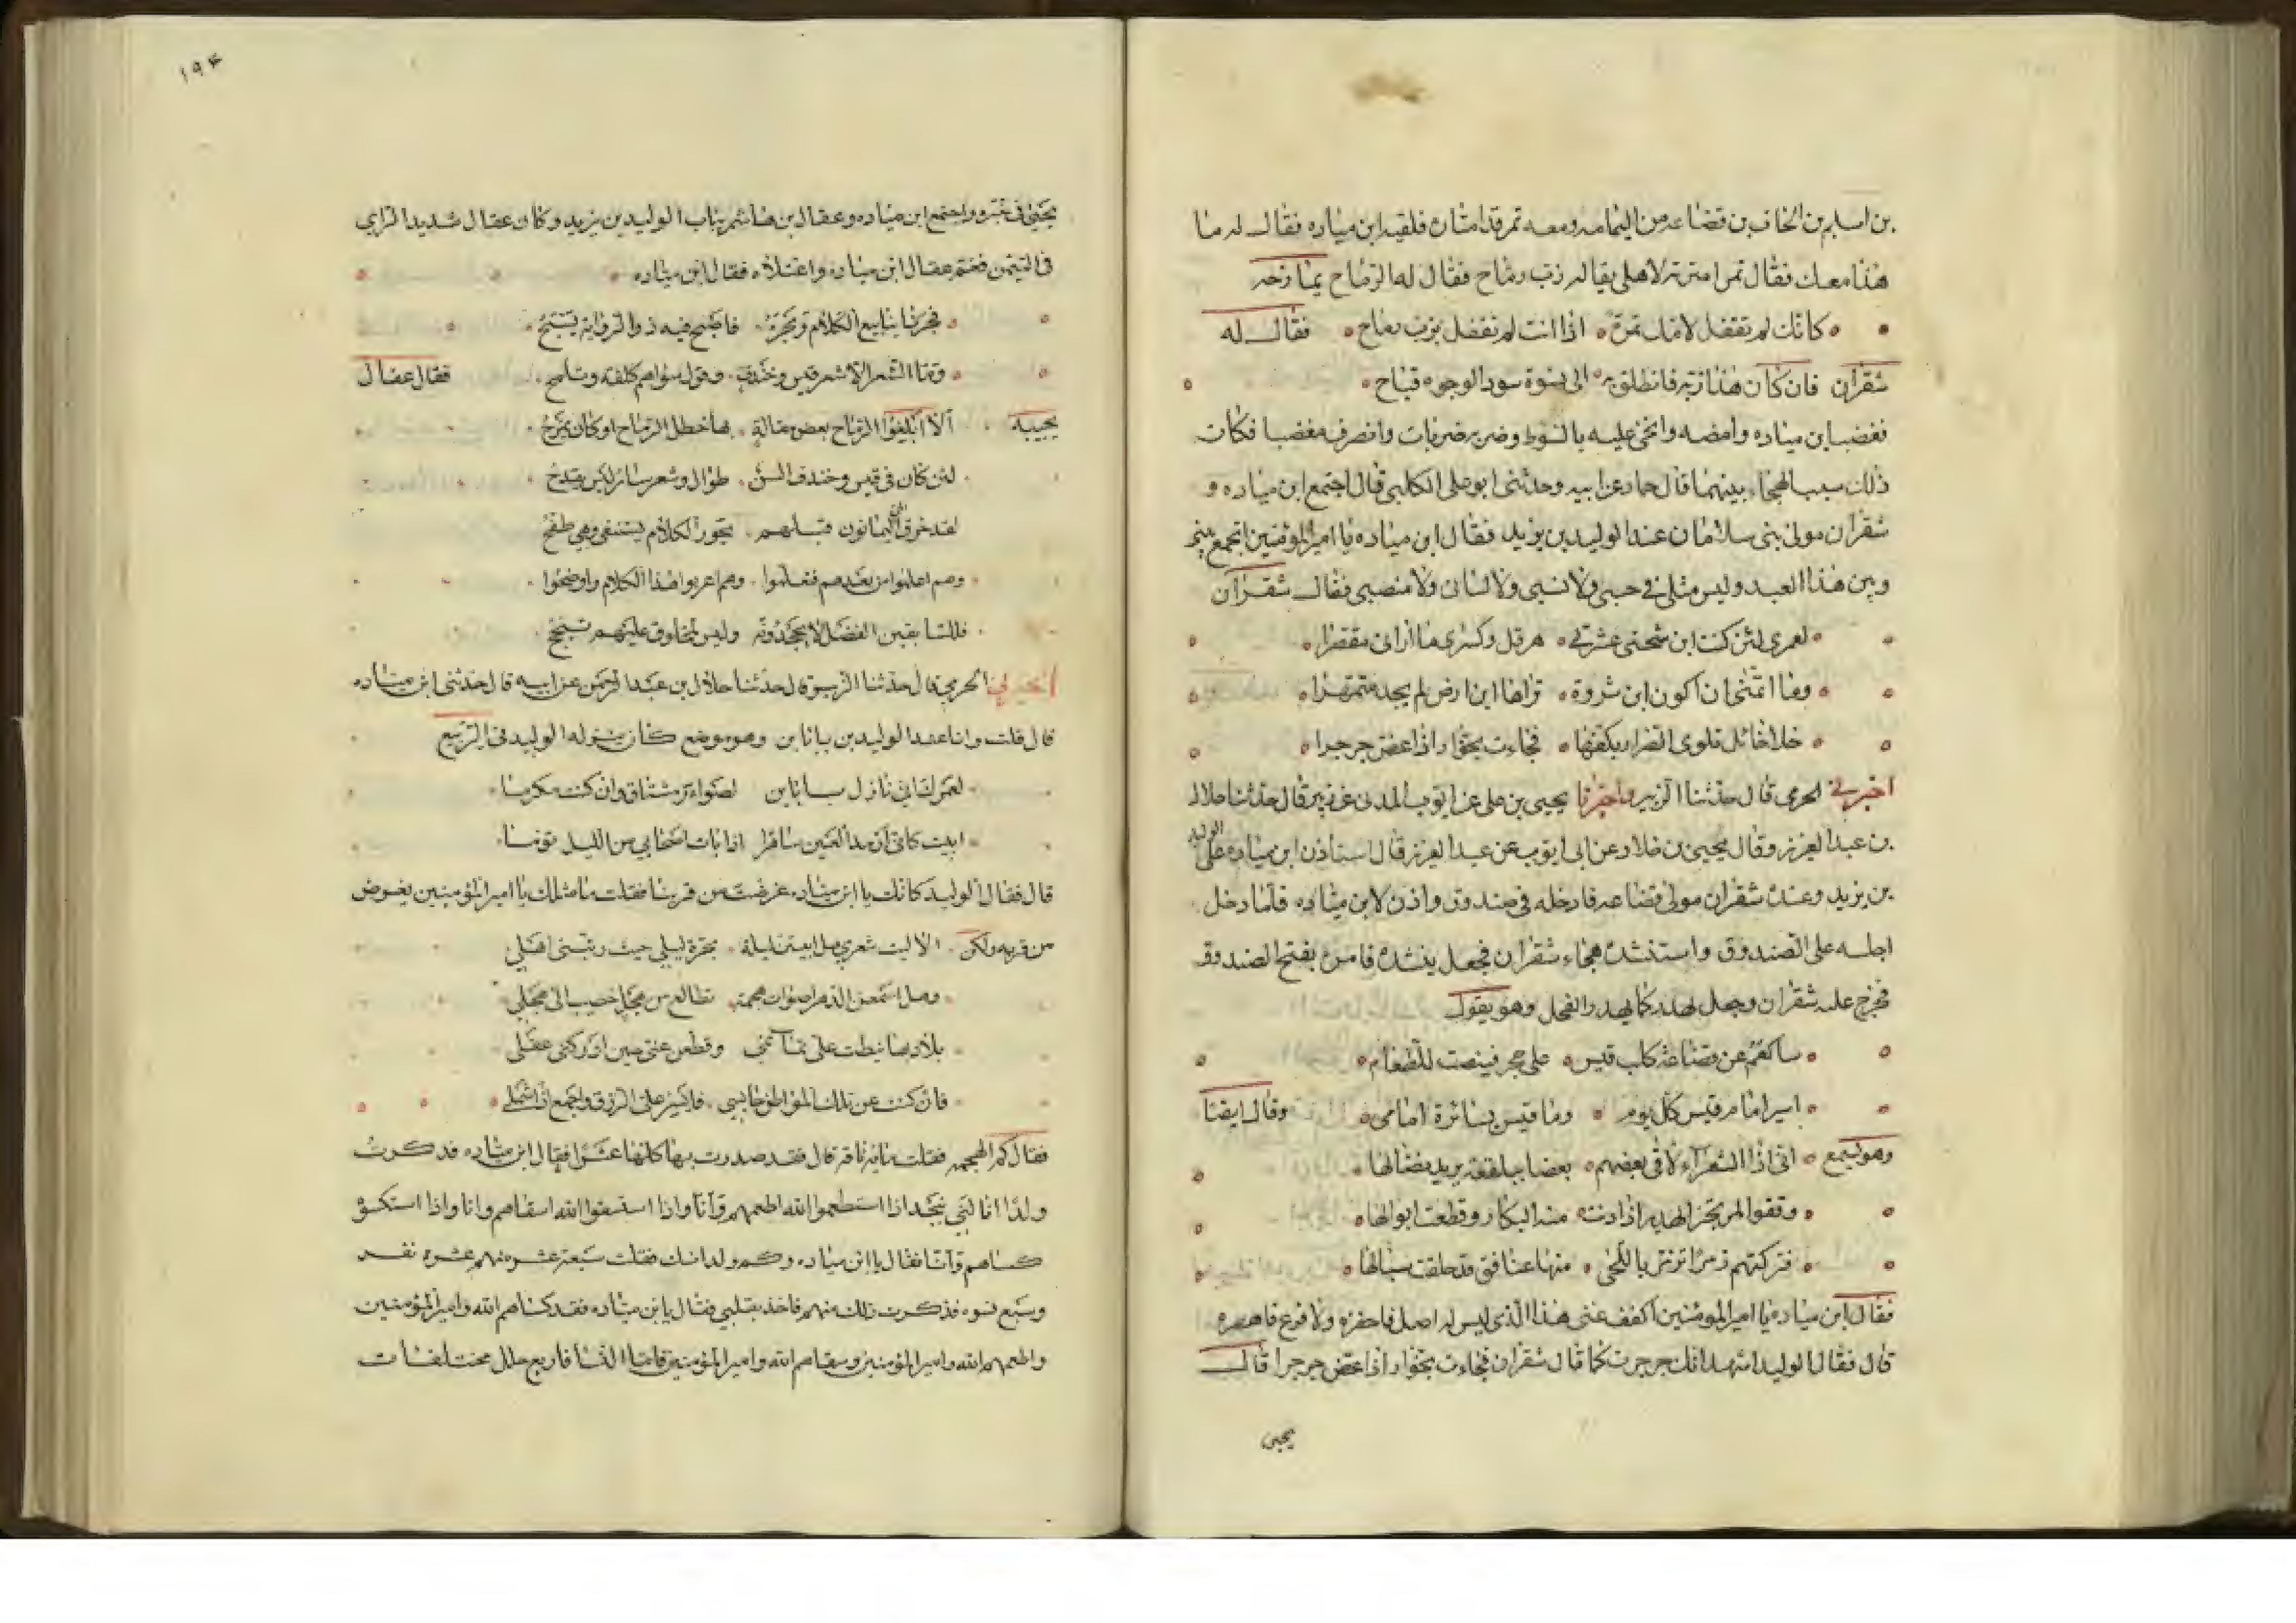 بن اسلم بن الحاف بن قضاعه من اليمامه ومعه تمر قد امتاره فلقيه ابن مياده فقال له ما
هذا معك فقال تمر امترته لاهلي يقال له زب رباح فقال له الرماح يمازحه
كانك لم تقفل لاهلك تمرة اذا انت لم تقفل بزب رباح فقال له
شقران فان كان هذا زبه فانطلق به الى نسوة سود الوجوه قباح
فغضب ابن مياده وامضه وانحى عليه بالسوط وضربه ضربات وانصرف مغضبا فكان
ذلك سبب الهجاء بينهما قال حماد عن ابيه وحدثني ابو علي الكلبي قال اجتمع ابن مياده و
شقران مولى بني سلامان عند الوليد بن يزيد فقال ابن مياده يا امير المؤمنين اتجمع بيني
وبين هذا العبد وليس مثلي في حسبي ولا نسبي ولا لساني ولا منصبي فقال شقران
لعمري لئن كنت ابن شيخي عشيرتي هرقل وكسرى ما اراني مقصرا
وما اتمنى ان اكون ابن نزوة نزاها ابن ارض لم يجد متمهرا
على حائل تلوي الصرار بكفها فجاءت بخوار اذا عض جرجرا
اخبرني الحرمي قال حدثنا الزبير واخبرنا يحيى بن علي عن ايوب المدني عن زبير قال حدثنا جلال
بن عبد العزيز وقال يحيى بن خلاد عن ابي ايوب عن عبد العزيز قال استاذن ابن مياده على الوليد
بن يزيد وعنده شقران مولى قضاعه فادخله في صندوق واذن لابن مياده فلما دخل
اجلسه على الصندوق واستنشده هجاء شقران فجعل ينشده فامر بفتح الصندوق
فخرج عليه شقران وجعل يهدر كما يهدر الفحل وهو يقول
ساكعم عن قضاعة كلب قيس على حجر فينصت للكعام
اسير امام قيس كل يوم وما قيس بسائرة امامي وقال ايضا
وهو يسمع اني اذا الشعراء لاقى بعضهم بعضا ببلقعة يريد نضالها
وقفوا لمرتجز الهدير اذا دنت منه البكار وقطعت ابوالها
فتركتهم زمرا ترمز باللحى منها عنافق قد حلقت سبالها
فقال ابن مياده يا امير المؤمنين اكفف عني هذا الذي ليس له اصل فاحفزه ولا فرع فاهصره
قال فقال الوليد اشهد انك جرجرت كما قال شقران فجاءت بخوار اذا عض جرجرا قال
يحيى
١٩۴
يحيى في خبره واجتمع ابن مياده وعقال بن هاشم بباب الوليد بن يزيد وكان عقال شديد الراي
في اليمن فغمز عقال ابن مياده واعتلاه فقال ابن مياده
فجرنا ينابيع الكلام وبحره فاصبح فيه ذو الرواية يسبح
وما الشعر الا شعر قيس وخندف وقول سواهم كلفة وتملح فقال عقال
يجيبه الا ابلغوا الرماح بعض مقالة بها خطل الرماح او كان يمزح
لئن كان في قيس وخندف السن طوال وشعر سائر ليس يقدح
لقد خرق الحي اليمانون قبلهم بحور الكلام يستقى وهي طفح
وهم علموا من بعدهم فتعلموا وهم اعربوا هذا الكلام واوضحوا
فللسابقين الفضل لا يجحدونه وليس لمخلوق عليهم تبجح
اخبرني الحرمي قال حدثنا الزبير قال حدثنا جلال بن عبد الرحمن عن ابيه قال حدثني ابن مياده
قال قلت وانا عند الوليد بن باباين وهو موضع كان ينزله الوليد في الربيع
لعمرك اني نازل باباين لصوار مشتاق وان كنت مكرما
ابيت كاني ارمد العين ساهرا اذا بات اصحابي من الليل نوما
قال فقال الوليد كانك يا ابن مياده غرضت من قربنا فقلت ما مثلك يا امير المؤمنين يغرض
من قربه ولكن الا ليت شعري هل ابيتن ليلة بحرة ليلى حيث ربتني اهلي
وهل اسمعن الدهر اصوات هجمة تطالع من هجل خصيب الى هجل
بلاد بها نيطت علي تمائمي وقطعن عني حين ادركني عقلي
فان كنت عن تلك المواطن حابسي فايسر علي الرزق واجمع اذا شملي
فقال كم الهجمه فقلت مائة ناقه قال فقد صدرت بها كلها عشرا فقال ابن مياده فذكرت
ولدا انا لي بنجد اذا استطعموا الله اطعمهم وانا واذا استسقوا الله اسقاهم وانا واذا استكسوه
كساهم وانا فقال يا ابن مياده وكم ولدانك فقلت سبعة عشر منهم عشره نفر
وسبع نسوه فذكرت ذلك منهم فاخذ بقلبي فقال يا بن مياده فقد كساهم الله وامير المؤمنين
واطعمهم الله وامير المؤمنين وسقاهم الله وامير المؤمنين فاما النسا فاربع حلل مختلفات